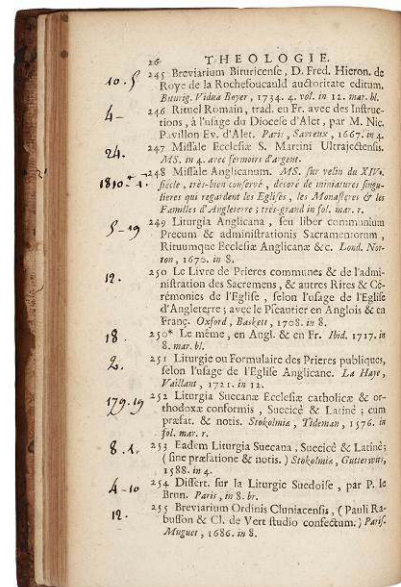 26 THEOLOGIE.
10.5 245 Breviarium Bituricense, D. Fred. Hieron. de
Roye de la Rochefoucauld auctoritate editum.
Boyer, 1734. 4. vol. in 12. mar. bl.
4- 246 Rituel Romain, trad. en Fr. avec des Instruc-
tions, à l'usage du Diocese d'Alet, par M. Nic.
Pavillon Ev. d'Alet. Paris, Savreux, 1667. in 4.
24. 247 Missale Ecclesiæ S. Martini Ultrajectensis.
MS. in 4. avec fermoirs d'argent.
1810-1. 248 Missale Anglicanum. MS. sur velin du XIVe.
siècle, très-bien conservé, décoré de miniatures singu-
lieres qui regardent les Eglises, les Monasteres & les
Familles d'Angleterre; très-grand in fol. mar. r.
5-19 249 Liturgia Anglicana, seu liber communium
Precum & administrationis Sacramentorum,
Rituumque Ecclesiæ Anglicanæ &c. Lond. Nor-
ton, 1670. in 8.
12. 250 Le Livre de Prieres communes & de l'admi-
nistration des Sacremens, & autres Rites & Cé-
rémonies de l'Eglise, selon l'usage de l'Eglise
d'Angleterre; avec le Pseautier en Anglois & en
Franç. Oxford, Baskett, 1708. in 8.
18. 250* Le même, en Angl. & en Fr. Ibid. 1717. in
8. mar. bl.
2. 251 Liturgie ou Formulaire des Prieres publiques,
selon l'usage de l'Eglise Anglicane. La Haye,
Vaillant, 1721. in 12.
179.19 252 Liturgia Suecanæ Ecclesiæ catholicæ & or-
thodoxæ conformis, Suecicè & Latinè; cum
præfat. & notis. Stokolmiæ, Tideman, 1576. in
fol. mar. r.
8.1. 253 Eadem Liturgia Suecana, Suecicè & Latinè;
(sine præfatione & notis.) Stokolmiæ,
1588. in 4.
4-10 254 Dissert. sur la Liturgie Suedoise, par P. le
Brun. Paris, in 8. br.
12. 255 Breviarium Ordinis Cluniacensis, (Pauli Ra-
busson & Cl. de Vert studio confectum.) Paris.
Muguet, 1686. in 8.